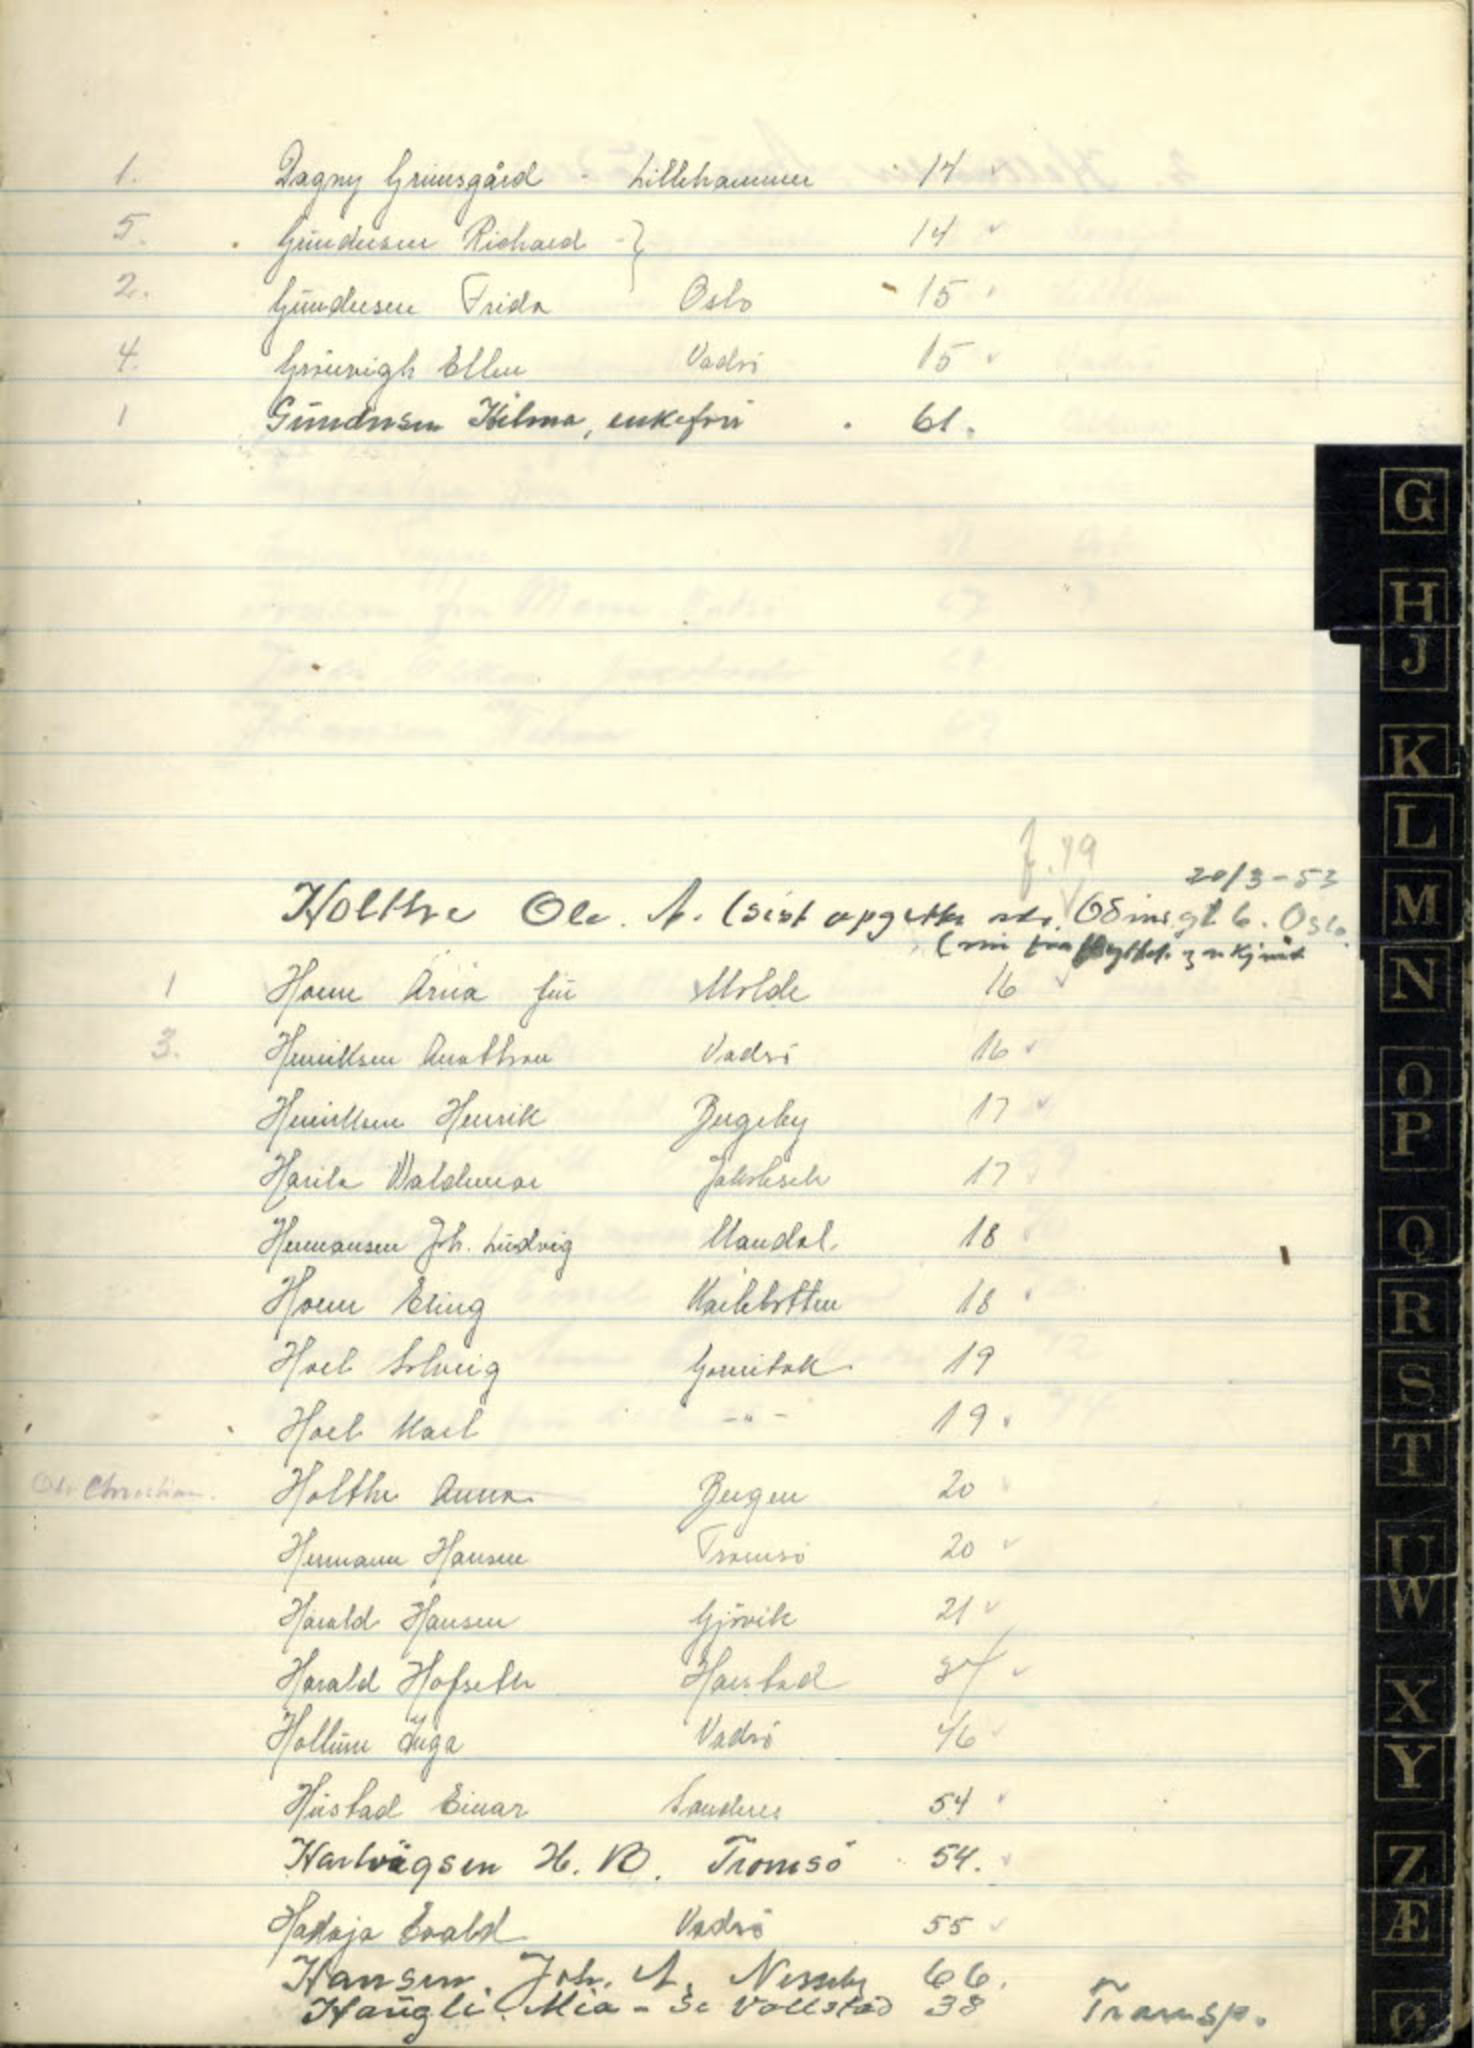 1. Dagny Grimsgård - Lillehammer 14
5. Gundersen Richard - } 14
2. Gundersen Frida Oslo 15
4. Ellen Vadsö 15
1 Gundersen Hilma, enkefrü . 61.
G
H
J
K
L
M
N
O
P
Q
R
S
T
U
W
X
Y
Z
Æ
Ø
f. 19
20/3-53
Holthe Ole. A. (sist Odinsgt 6. Oslo.
1 Hoem frü Molde 16
3. Henriksen Vadsö 16
Henriksen Henrik Bergeby 17
Harila Waldemar 17
Hermansen Joh. Ludvig Mandal. 18
Hoem Erling 18
Hoel Solveig 19
Hoel Karl -"- 19
Christian. Holthe Anna Bergen 20
Hermann Hansen Tromsö 20
Harald Hansen Gjövik 21
Harald Hofseth Harstad
Inga Vadsö 46
Hüstad Einar 54
Hartvigsen H. B. Tromsö 54.
Evald Vadsö 55
Hansen. Joh. A. Nesseby 66.
Haugli. Mia - Se Vollstad 38 Transp.